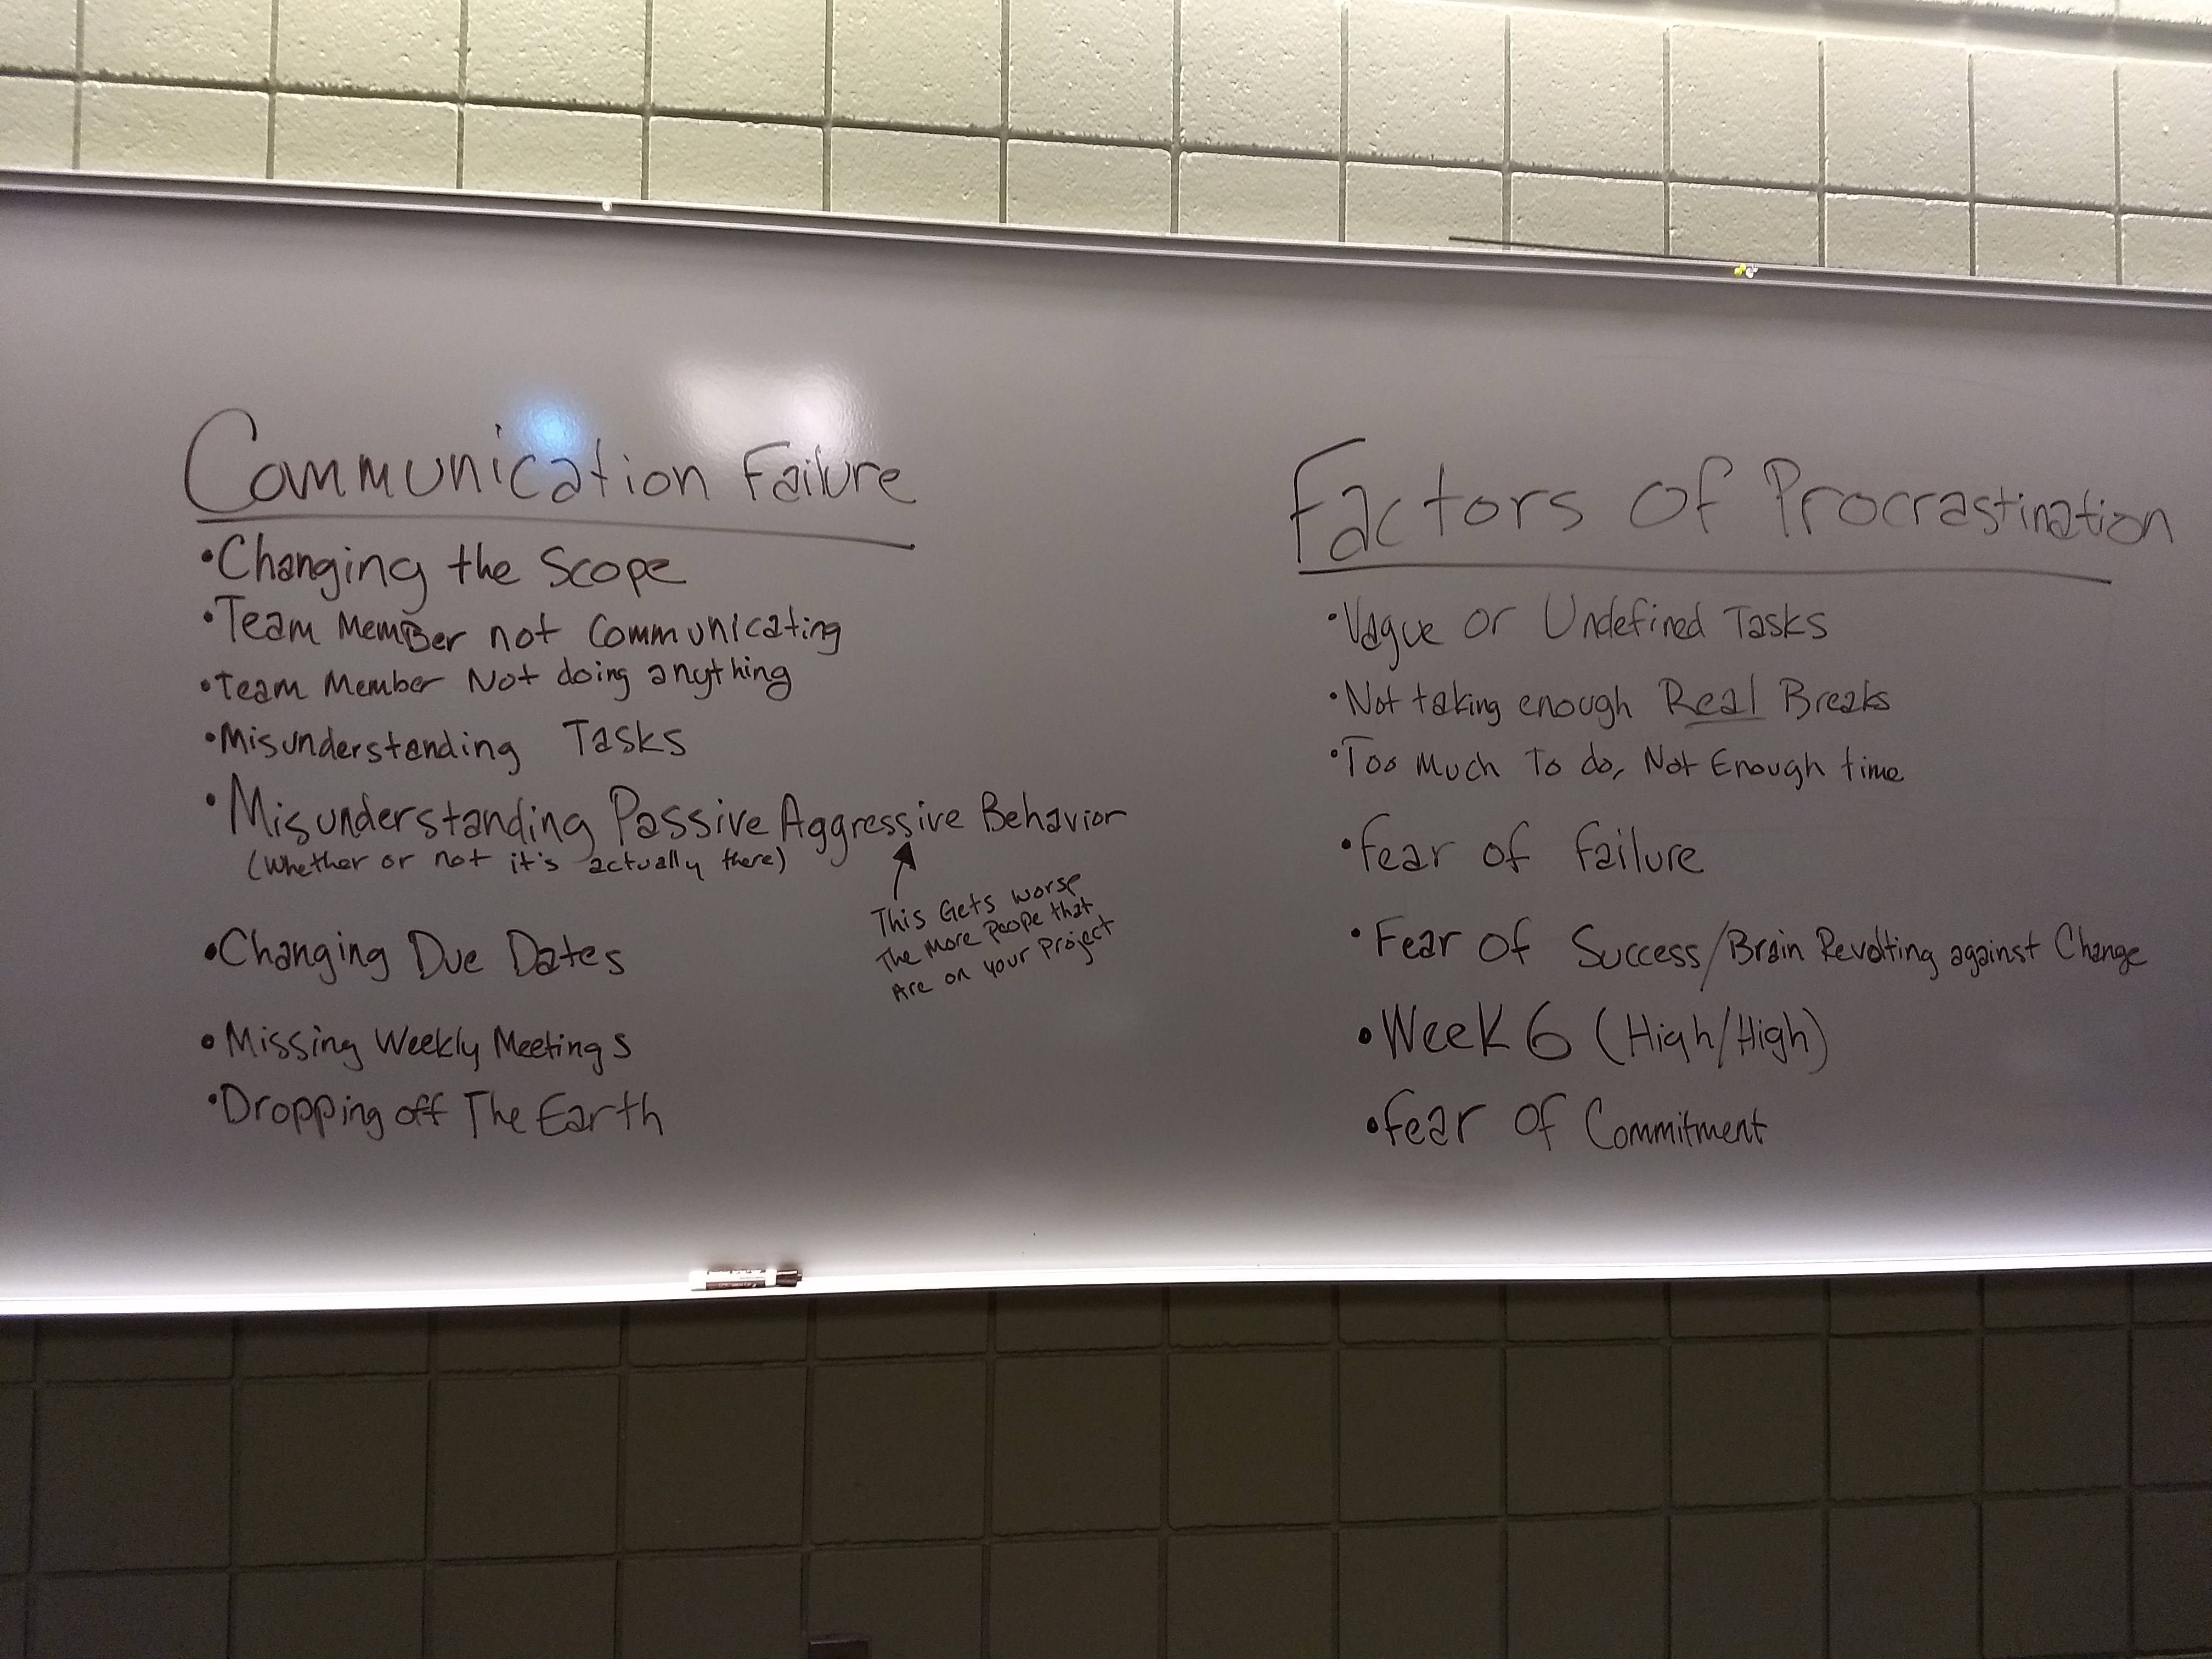 Communication Failure
• Changing the Scope
• Team Member not Communicating
• Team Member Not doing anything
• Misunderstanding Tasks
• Misunderstanding Passive Aggressive Behavior
(Whether or not it's actually there)
This Gets worse
The more peope that
Are on your Project
• Changing Due Dates
• Missing Weekly Meetings
• Dropping off The Earth
Factors of Procrastination
• Vague or Undefined Tasks
• Not taking enough Real Breaks
• Too Much To do, Not Enough time
• Fear of Failure
• Fear of Success/Brain Revolting against Change
• Week 6 (High/High)
• Fear of Commitment